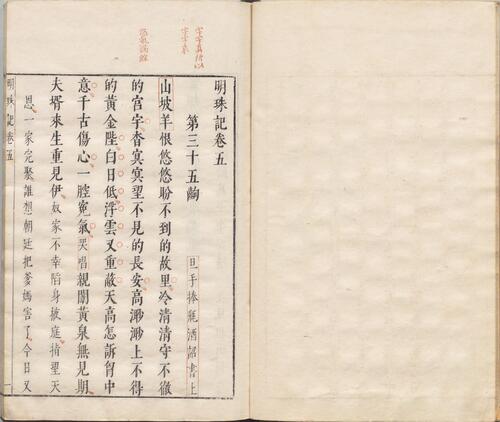 明珠記卷五
第三十五齣
旦手捧瓶酒詔書上
山坡羊恨悠悠盼不到的故里冷清清守不徹
的宮宇杳冥冥望不見的長安高渺渺上不得
的黃金陛白日低浮雲又重蔽天高怎訴胷中
意千古傷心一腔寃氣哭唱親闈黃泉無見期
夫壻來生重見伊奴家不幸陷身掖庭指望天
恩一家完聚誰想朝廷把爹媽害了今日又
明珠記卷五
一